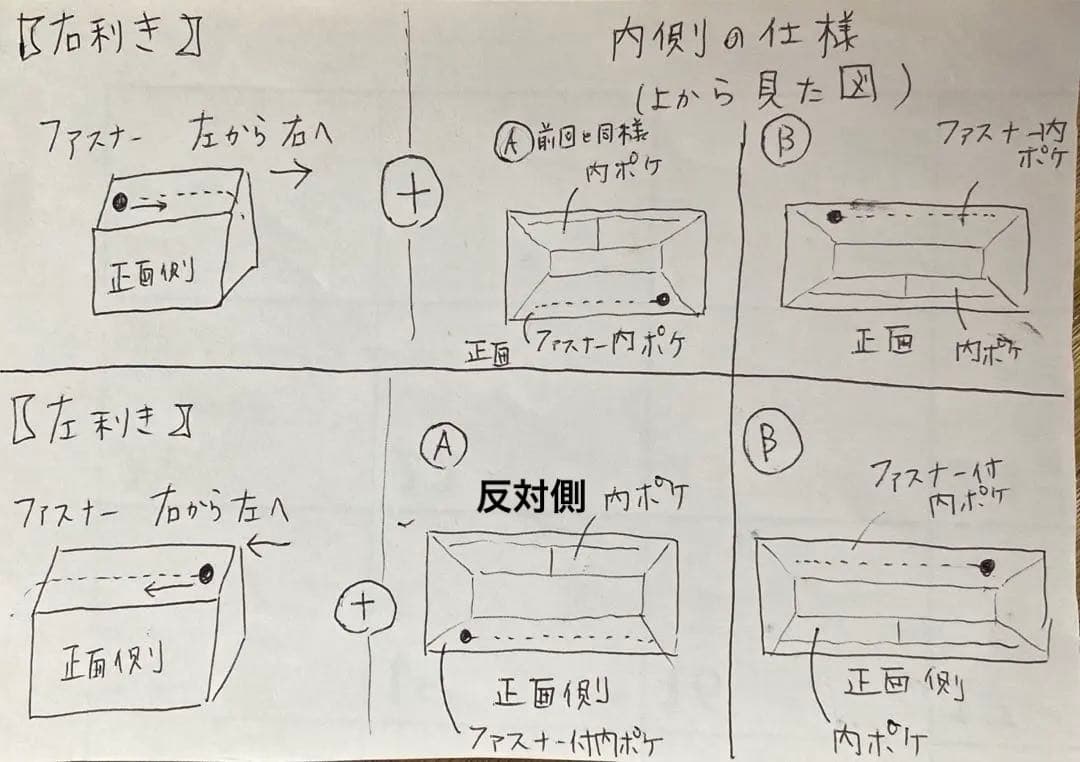 【右利き】
ファスナー 左から右へ
正面側
+
内側の仕様
(上から見た図)
A 前回と同様
内ポケ
正面 ファスナー内ポケ
B
ファスナー内
ポケ
正面
内ポケ
【左利き】
ファスナー 右から左へ
正面側
+
A
反対側 内ポケ
正面側
ファスナー付内ポケ
B
ファスナー付
内ポケ
正面側
内ポケ